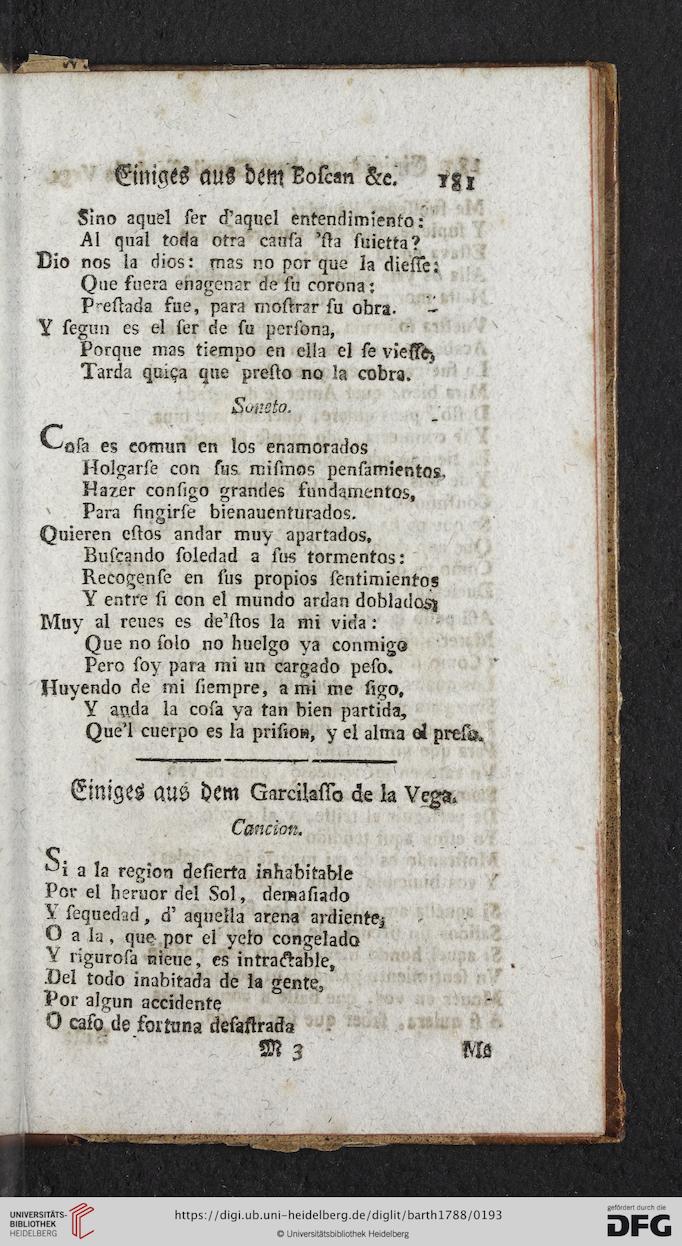 Einiges aus dem Boſcan &c. 181
Sino aquel ſer d'aquel entendimiento:
Al qual toda otra cauſa 'ſta ſuietta?
Dio nos la dios: mas no por que la dieſſe:
Que fuera enagenar de ſu corona:
Preſtada fue, para moſtrar ſu obra.
Y ſegun es el ſer de ſu perſona,
Porque mas tiempo en ella el ſe vieſſe,
Tarda quiça que preſto no la cobra.
Soneto.
Coſa es comun en los enamorados
Holgarſe con ſus miſmos penſamientos,
Hazer conſigo grandes fundamentos,
Para fingirſe bienauenturados.
Quieren eſtos andar muy apartados,
Buſcando ſoledad a ſus tormentos:
Recogenſe en ſus propios ſentimientos
Y entre ſi con el mundo ardan doblados;
Muy al reues es de'ſtos la mi vida:
Que no ſolo no huelgo ya conmigo
Pero ſoy para mi un cargado peſo.
Huyendo de mi ſiempre, a mi me ſigo,
Y anda la coſa ya tan bien partida,
Que'l cuerpo es la priſion, y el alma el preſo.
Einiges aus dem Garcilaſſo de la Vega.
Cancion.
Si a la region deſierta inhabitable
Por el heruor del Sol, demaſiado
Y ſequedad, d' aquella arena ardiente;
O a la, que por el yelo congelado
Y riguroſa nieue, es intractable,
Del todo inabitada de la gente,
Por algun accidente
O caſo de fortuna deſaſtrada
M 3 Me
UNIVERSITÄTS-
BIBLIOTHEK
HEIDELBERG
https://digi.ub.uni-heidelberg.de/diglit/barth1788/0193
© Universitätsbibliothek Heidelberg
gefördert durch die
DFG